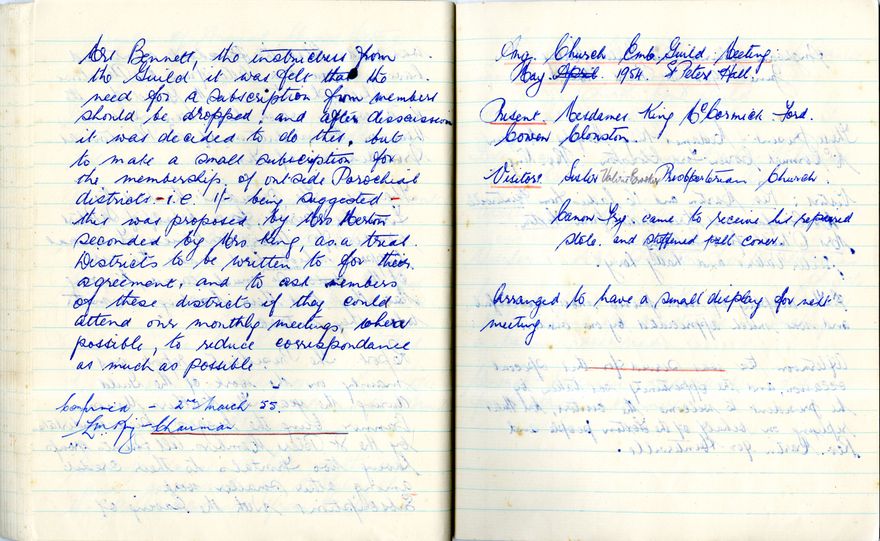 Mrs Bennett, the instructress from
the Guild it was felt that the
need for a subscription from members
should be dropped, and after disscission
it was decided to do this, but
to make a small subscription for
the membership of outside Parochial
districts - i.e. 1/- being suggested -
this was proposed by Mrs Herton
seconded by Mrs King, as a trial.
Districts to be written to for their
agreement, and to ask members
of these districts if they could
attend our monthly meetings, where
possible, to reduce correspondance
as much as possible.
Confirmed - 2nd March 55.
Chairman
Church Emb. Guild. Meeting.
May April 1954. St Peters Hall.
Present. Mesdames King McCormick. Ford.
Cowen Clouston.
Visitors Sister Presbyterian Church.
Canon Fry. came to receive his repaired
stole. and stiffened pall cover.
Arranged to have a small display for next
meeting